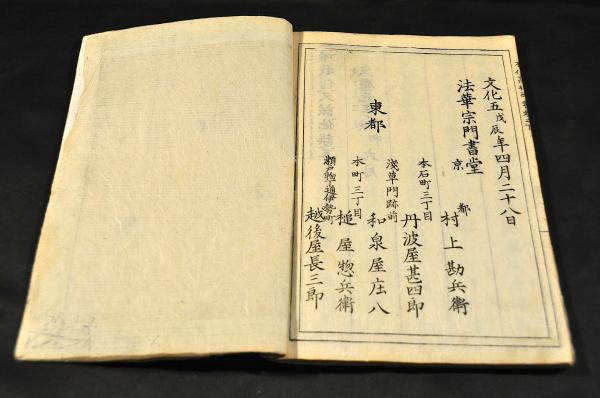 文化五戊辰年四月二十八日
法華宗門書堂
京都
村上勘兵衛
東都
本石町三丁目
丹波屋甚四郎
淺草門跡前
和泉屋庄八
本町三丁目
槌屋惣兵衛
瀬戸物通伊勢町
越後屋長三郎